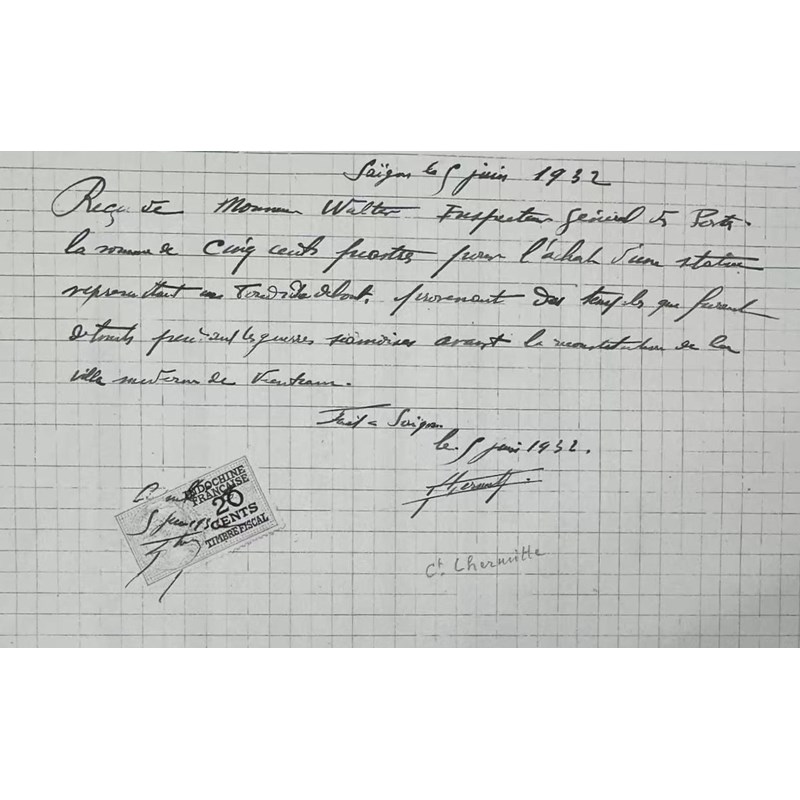 Saïgon le 5 juin 1932
Reçu de Monsieur Walter Inspecteur général des Postes
la somme de Cinq cents piastres pour l'achat d'une statue
représentant un Bouddha debout, provenant des temples que furent
détruits pendant les guerres siamoises avant la reconstitution de la
ville moderne de Vientiane.
Fait à Saïgon
le 5 juin 1932.
INDOCHINE
FRANÇAISE
20
CENTS
TIMBRE FISCAL
5 juin
Ct. Lhermitte